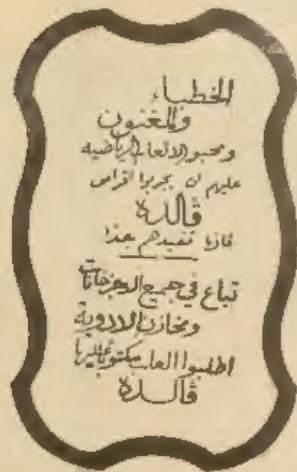 الخطباء
والمغنون
ومحبو الالعاب الرياضيه
عليهم ان يجربوا اقراص
ڤالدة
فانها تفيدهم جدا
تباع في جميع الاجزخانات
ومخازن الادوية
اطلبوا العلب مكتوب عليها
ڤالدة